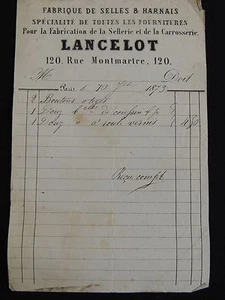 FABRIQUE DE SELLES & HARNAIS
SPÉCIALITÉ DE TOUTES LES FOURNITURES
Pour la Fabrication de la Sellerie et de la Carrosserie.
LANCELOT
120, Rue Montmartre, 120.
M Doit
Paris 1873
2 Boutons
1 Douz de
1 Douz à roul vernis
Reçu compt